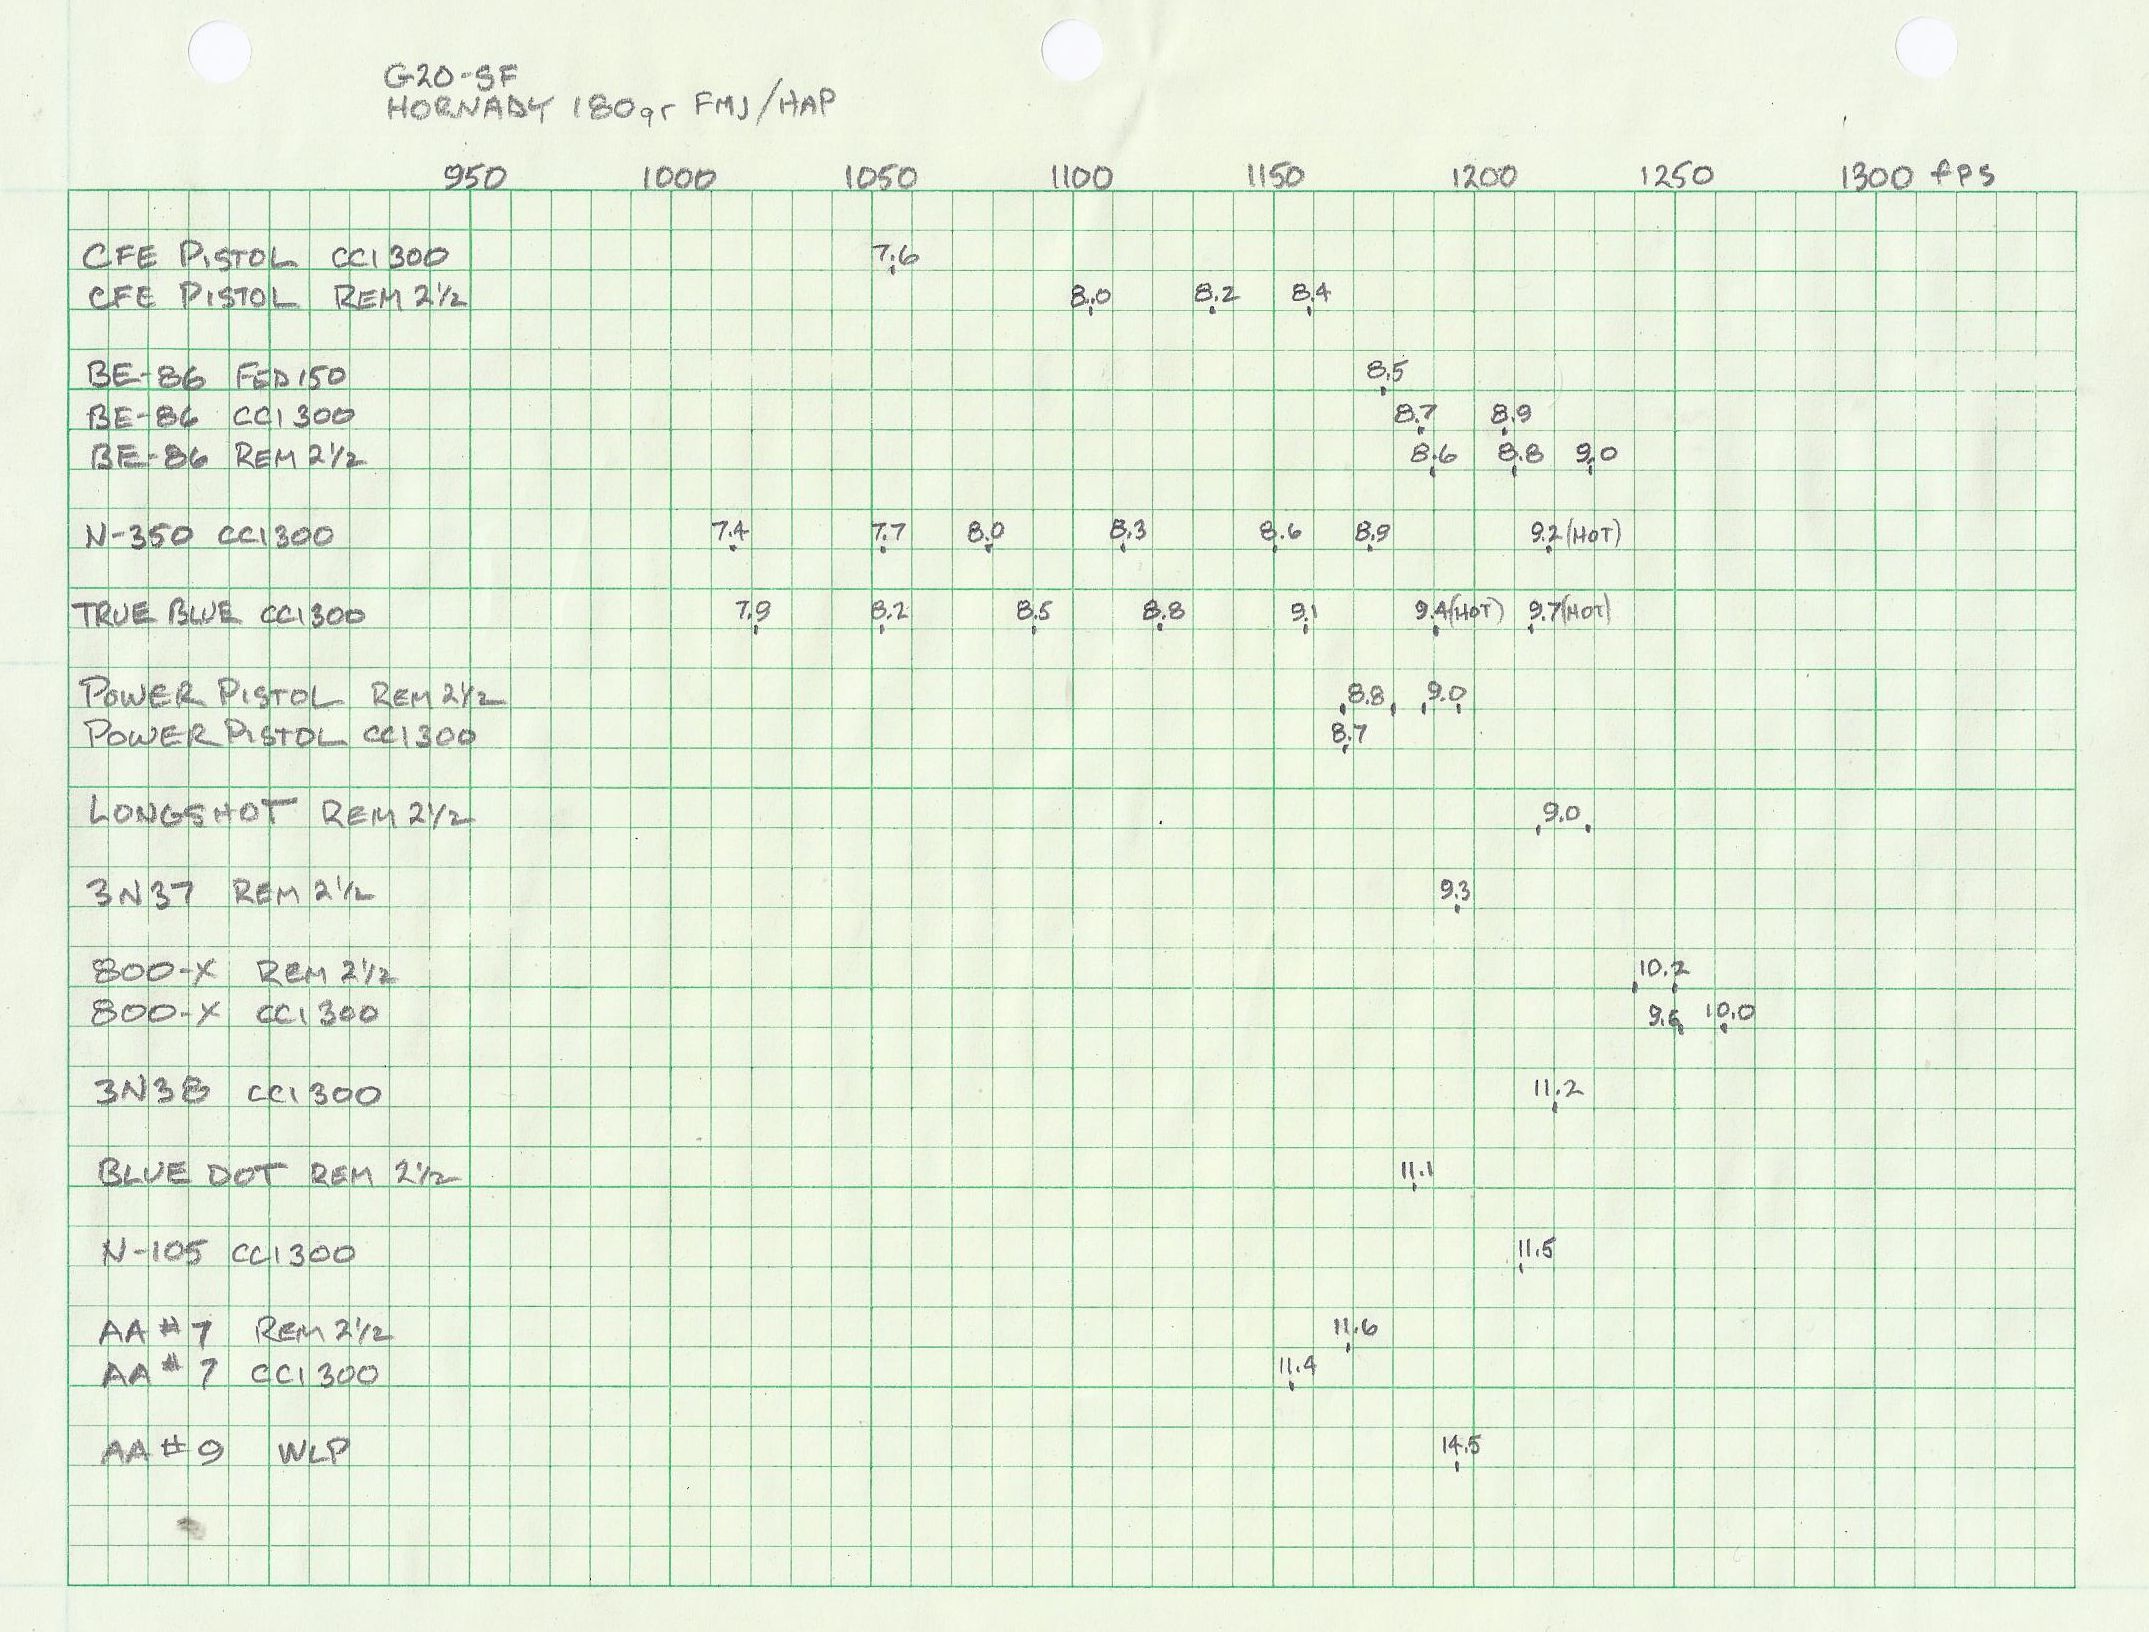 G20-SF
HORNADY 180gr FMJ/HAP
950 1000 1050 1100 1150 1200 1250 1300 fps
CFE PISTOL CCI 300 7.6
CFE PISTOL REM 2½ 8.0 8.2 8.4
BE-86 FED 150 8.5
BE-86 CCI 300 8.7 8.9
BE-86 REM 2½ 8.6 8.8 9.0
N-350 CCI 300 7.4 7.7 8.0 8.3 8.6 8.9 9.2 (HOT)
TRUE BLUE CCI 300 7.9 8.2 8.5 8.8 9.1 9.4 (HOT) 9.7 (HOT)
POWER PISTOL REM 2½ 8.8 9.0
POWER PISTOL CCI 300 8.7
LONGSHOT REM 2½ 9.0
3N37 REM 2½ 9.3
800-X REM 2½ 10.2
800-X CCI 300 10.0
3N38 CCI 300 11.2
BLUE DOT REM 2½ 11.1
N-105 CCI 300 11.5
AA #7 REM 2½ 11.6
AA #7 CCI 300 11.4
AA #9 WLP 14.5